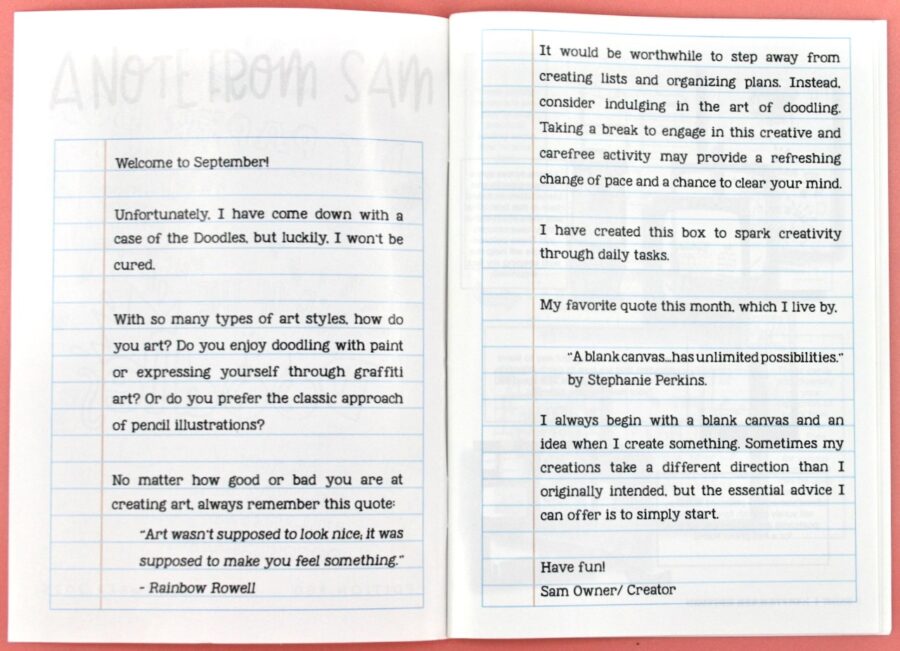 A NOTE FROM SAM
Welcome to September!
Unfortunately, I have come down with a
case of the Doodles, but luckily, I won't be
cured.
With so many types of art styles, how do
you art? Do you enjoy doodling with paint
or expressing yourself through graffiti
art? Or do you prefer the classic approach
of pencil illustrations?
No matter how good or bad you are at
creating art, always remember this quote:
"Art wasn't supposed to look nice; it was
supposed to make you feel something."
- Rainbow Rowell
It would be worthwhile to step away from
creating lists and organizing plans. Instead,
consider indulging in the art of doodling.
Taking a break to engage in this creative and
carefree activity may provide a refreshing
change of pace and a chance to clear your mind.
I have created this box to spark creativity
through daily tasks.
My favorite quote this month, which I live by,
"A blank canvas...has unlimited possibilities."
by Stephanie Perkins.
I always begin with a blank canvas and an
idea when I create something. Sometimes my
creations take a different direction than I
originally intended, but the essential advice I
can offer is to simply start.
Have fun!
Sam Owner/ Creator